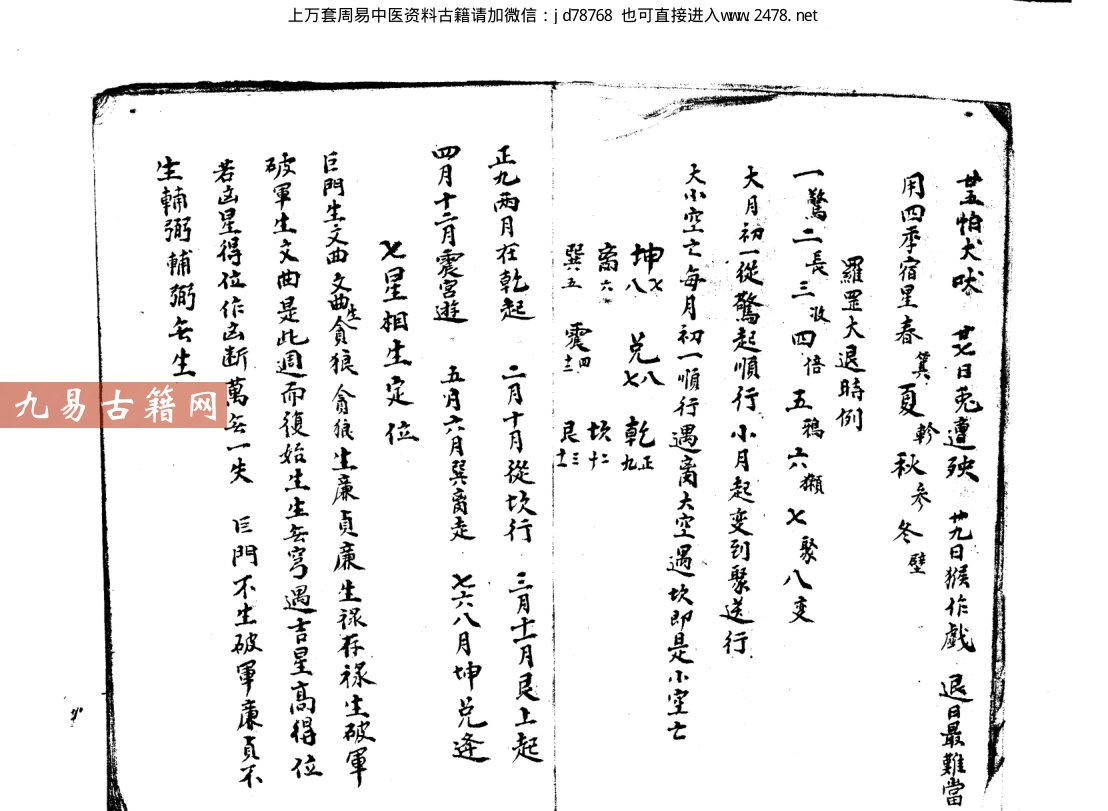 上万套周易中医资料古籍请加微信：jd78768 也可直接进入www.2478.net
廿五怕犬吠 廿七日兎遭殃 廿九日猴作戯 退日最難當
用四季宿星春箕夏軫秋参冬壁
羅罡大退時例
一驚二長三收四倍五鴉六獺七聚八变
大月初一從驚起順行小月起变到聚送行
大小空亡每月初一順行遇离大空遇坎即是小空亡
坤七八 兌八七 乾正九
离六 坎十二
巽五 震四十二 艮三十一
正九两月在乾起 二月十月從坎行 三月十一月艮上起
四月十二月震宫遊 五月六月巽离走 七六八月坤兌逢
七星相生定位
巨門生文曲文曲生貪狼貪狼生廉貞廉生禄存禄生破軍
破軍生文曲是此週而復始生生無穹遇吉星高得位
若凶星得位作凶断萬無一失 巨門不生破軍廉貞不
生輔弼輔弼無生
九易古籍网